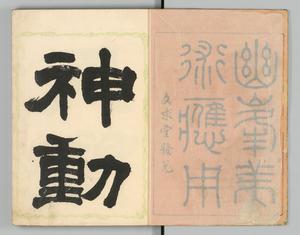 幽美
術應用
文求堂發兌
神動